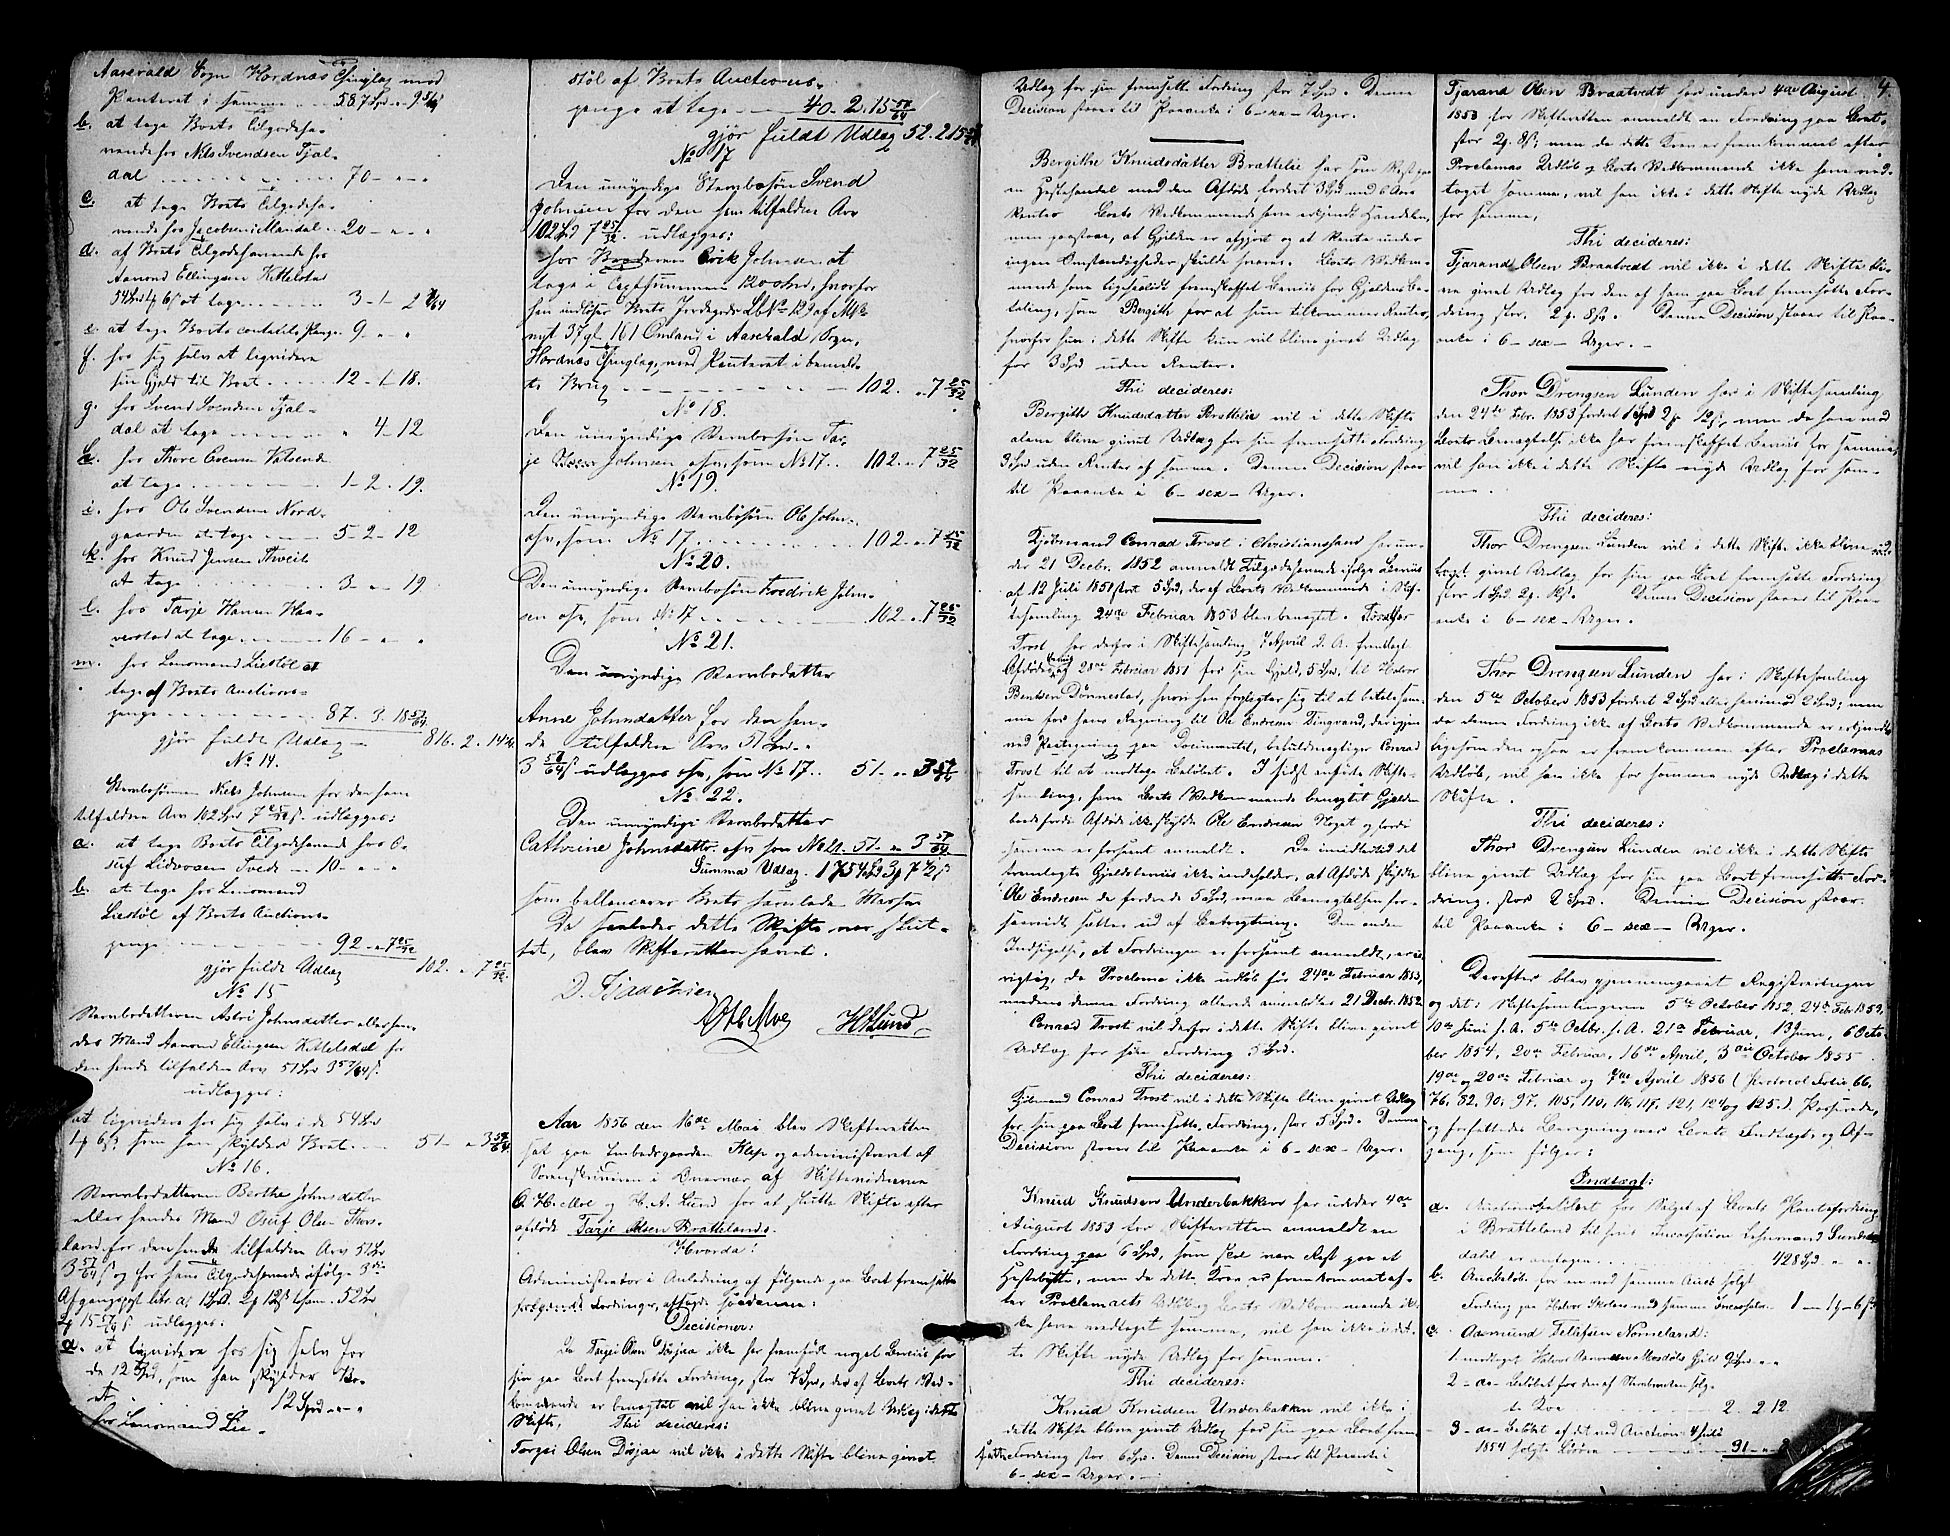 Aaserald Sogn Hordnæs Thinglag med
Panteret i samme ... 587 Spd
b. at tage Boets Tilgodeha-
vende hos Nils Svendsen Fjal-
dal 70 - " - "
c. at tage Boets Tilgodeha-
vende hos Jacobsen i Mandal .. 20 - " "
d. af Boets Tilgodehavende hos
Aamond Ellingsen Kittelsdal
at tage 3 - 1 - 2
e. at tage Boets contante Penge 9 " "
f. hos sig selv at liqvidere
sin Gjeld til Boet 12 - 1 - 18.
g. hos Svend Svendsen Fjal-
dal at tage " 4 - 12
h. hos Thore Evensen
at tage 1 - 2 - 19.
i. hos Ole Svendsen Nord-
gaarden at tage 5 - 2 - 12
k. hos Knud Jensen Thveit
at tage 3 - " - 19.
l. hos Tarje Hansen Haa-
verstad at tage 16 - " - "
m. hos Lensmand Liestøl at
tage af Boets Auctions-
penge 87. 3. 18 57/64
gjør fuldt Udlæg 816. 2. 14
No 14.
Sterbosønnen Niels Johnsen for den ham
tilfaldne Arv 102 Spd 7 25/32 s. udlægges:
a. at tage Boets Tilgodehavende hos O-
suf Tvede 10 - " - "
b. at tage hos Lensmand
Liestøl af Boets Auctions-
penge 92 - " 7 25/32
gjør fuldt Udlæg 102. " 7 25/32
No 15
Sterbodatteren Astri Johnsdatter eller hen-
des Mand Aamond Ellingsen Kittelsdal for
den hende tilfaldne Arv 51 Spd 3 57/64 s.
udlægges:
at liqvidere hos sig selv i de 54 Spd
1 6 s. som han skylder Boet 51 - " 3 57/64
No 16.
Sterbodatteren Berthe Johnsdatter
eller hendes Mand Osuf Olsen Thors-
land for den hende tilfaldne Arv 51 Spd
3 57/64 s og for hans Tilgodehavende ifølge
Afgangspost litr. a, 1 Spd. 2 12 s tsam. 52 Spd
2 15 57/64 s udlægges:
a. at liqvidere hos sig selv for
de 12 Spd, som han skylder Bo-
et 12 Spd - " - "
hos Lensmand Lie-
støl af Boets Auctions-
penge at tage 40. 2. 15 57/64
gjør fuldt Udlæg 52. 2 15
No 17
Den umyndige Sterbosøn Svend
Johnsen for den ham tilfaldne Arv
102 Spd 7 25/32. udlægges:
hos Broderen Erik Johnsen at
tage i Kjøbsummen 1200 Spd, hvorfor
han indløser Boets Jordegods Lb No 129 af M No
nyt 37 gl. 161 Omland i Aaserald Sogn,
Hordnæs Thinglag, med Panteret i bemeld-
te Brug 102. " 7 25/32
No 18.
Den umyndige Sterbosøn Tar-
je Johnsen osv, som No 17 .. 102. " 7 25/32
No 19.
Den umyndige Sterbosøn Ole John-
osv, som No 17 102. " 7 25/32
No 20.
Den umyndige Sterbosøn Fredrik John-
sen osv, som No 17 102. " 7 25/32
No 21.
Den umyndige Sterbodatter
Anne Johnsdatter for den hen-
de tilfaldne Arv 51 Spd. "
3 57/64 s udlægges osv, som No 17 .. 51 - " 3 57/64
No 22.
Den umyndige Sterbodatter
Cathrine Johnsdatter osv som No 21. 51 - " 3 57/64
Summa Udlæg. 1754 Spd 3 7 1/2 s
som ballancerer Boets samlede Masse.
Da saaledes dette Skifte var slut-
tet, blev Skifteretten hævet.
OH Moe HALund
Aar 1856 den 16de Mai blev Skifteretten
sat paa Embedsgaarden Klep og administreret af
Sorenskriveren i Overvær af Skiftevidnerne
O. H. Moe og H. A. Lund for at slutte Skifte efter
afdøde Tarje Olsen Brattelands.
Hvorda:
Administrator i Anledning af følgende paa Boet fremsatte
følgende Fordringer, afsagde saadanne:
Decisioner:
Da Torgei Olsen Døsjaa ikke har fremstillet noget Beviis for
sin paa Boet fremsatte Fordring, stor 7 Spd, der af Boets Ved-
kommende er benegtet vil han ikke blive givet Udlæg i dette
Skifte. Thi decideres:
Torgei Olsen Døsjaa vil ikke i dette Skifte blive givet
Udlæg for sin fremsatte Fordring stor 7 Spd. Denne
Decision staaer til Paaanke i 6 - sex - Uger.
Bergithe Knudsdatter Brattelie har som Rest paa
en Hestehandel med den Afdøde fordret 3 Spd med 6 Aars
Renter. Boets Vedkommende have erkjendt Handelen,
men paastaaer, at Gjelden er afgjort og at Rente under
ingen Omstændigheder skulde svares. Boets Vedkom-
mende have ligesaalidt fremskaffet Beviis for Gjeldens Be-
taling, som Bergith for at hun tilkommer Renter,
hvorfor hun i dette Skifte kun vil blive givet Udlæg
for 3 Spd uden Renter.
Thi decideres:
Bergith Knudsdatter Brattelie vil i dette Skifte
alene blive givet Udlæg for sin fremsatte Fordring
3 Spd uden Renter af samme. Denne Decision staaer
til Paaanke i 6 - sex - Uger.
Kjøbmand Conrad Trost i Christianssand har un-
der 21 Decbr. 1852 anmeldt Tilgodehavende ifølge Beviis
af 12 Juli 1851 stort 5 Spd, der af Boets Vedkommende i Skif-
tesamling 24de Februar 1853 blev benegtet. Conrad
Trost har derfor i Skiftesamling 7 April d. A. fremlagt
Afdødes Beviis af 28de Februar 1851 for sin Gjeld, 5 Spd. til Halvor
Bentsen Dønnestad, hvori han forpligter sig til at betale sam-
me for hans Regning til Ole Endresen Tingvand, der igjen
ved Paategning paa Documentet, befuldmægtiger Conrad
Trost til at modtage Beløbet. I sidst anførte Skifte-
samling, have Boets Vedkommende benegtet Gjelden
baade fordi Afdøde ikke skylde Ole Endresen Noget og fordi
samme er forsent anmeldt. Da imidlertid det
fremlagte Gjeldsbeviis ikke indeholder, at Afdøde skyldte
Ole Endresen de fordrede 5 Spd, maa Benegtelsen for-
saavidt sættes ud af Betragtning. Den anden
Indsigelse, at Fordringen er forsent anmeldt, er u-
rigtig, da Proclama ikke udløb før 24de Februar 1853,
medens denne Fordring allerede anmeldtes 21 Decbr. 1852
Conrad Trost vil derfor i dette Skifte blive givet
Udlæg for sine Fordring 5 Spd.
Thi decideres:
Kjøbmand Conrad Trost vil i dette Skifte blive givet Udlæg
for sin paa Boet fremsatte Fordring, stor 5 Spd. Denne
Decision staaer til Paaanke i 6 - sex - Uger.
Knud Knudsen Underbakken har under 4de
August 1853 for Skifteretten anmeldt en
Fordring paa 6 Spd, som skal være Rest paa et
Hestebytte, men da dette Krav er fremkommet ef-
ter Proclamaets Udløb og Boets Vedkommende ik-
ke have vedtaget samme, vil han ikke i det-
te Skifte nyde Udlæg for samme.
Thi decideres:
Knud Knudsen Underbakken vil ikke i
dette Skifte blive givet Udlæg for sin paa Boet frem-
satte Fordring stor 6 Spd. Denne Decision staaer til Paaanke i
6 - sex - Uger.
4.
Tjarand Olsen Braatvedt har under 4de August
1853 for Skifteretten anmeldt en Fordring paa Boet
stor 2 8 s; men da dette Krav er fremkommet efter
Proclamas Udløb og Boets Vedkommende ikke have ved-
taget samme, vil han ikke i dette Skifte nyde Udlæg
for samme,
Thi decideres:
Tjarand Olsen Braatvedt vil ikke i dette Skifte bli-
ve givet Udlæg for den af ham paa Boet fremsatte For-
dring stor. 2 8 s. Denne Decision staaer til Paa-
anke i 6 - sex - Uger. -
Thor Drengsen Lunden har i Skiftesamling
den 24de Febr. 1853 fordret 1 Spd 2 12 s, men da han mod
Boets Benegtelse ikke har fremskaffet Beviis for samme,
vil han ikke i dette Skifte nyde Udlæg for sam-
me.
Thi decideres:
Thor Drengsen Lunden vil i dette Skifte ikke blive
givet Udlæg for sin paa Boet fremsatte Fordring
stor 1 Spd. 2 12 s. Denne Decision staaer til Paa-
anke i 6 - sex - Uger.
Thor Drengsen Lunden har i Skiftesamling
den 5te October 1853 fordret 2 Spd 2 Spd; men
da denne Fordring ikke af Boets Vedkommende er erkjendt
ligesom den ogsaa er fremkommen efter Proclamas
Udløb, vil han ikke for samme nyde Udlæg i dette
Skifte.
Thi decideres:
Thor Drengsen Lunden vil ikke i dette Skifte
blive givet Udlæg for sin paa Boet fremsatte For-
dring, stor 2 Spd. Denne Decision staaer
til Paaanke i 6 - sex - Uger.
Derefter blev gjennemgaaet Registreringen
og det i Skiftesamlingerne 5te October 1852, 24de Febr 1853,
10de Juni s. A. 5te Octbr. s. A. 21de Februar, 13 Juni, 6 Octo-
ber 1854, 20de Februar, 16de April, 3die October 1855
19de og 20de Februar og 7de April 1856 (Protocol Folio 66,
76. 82. 90. 97. 105, 110, 116, 117, 121, 124 og 125.) Passerede,
og forfattedes Beregning over Boets Indtægt- og Af-
gang, som følger:
Indtægt:
a. Auctionsbeløbet for Salget af Boets Pantefordring
i Bratteland til hvis Incassation Lehnsmand Sunds-
dahl er antagen 428 Spd " "
b. Auctbeløb. for en ved samme Auct. solgt
Fording paa Halvor med samme Incassator. 1 - 1 - 6 s.
c. Aasmund Tellefsen Nomeland:
1. modtaget Halvor Aanensen Gjeld 9 Spd - "
2 - do - Beløbet for den af Sterboenken solg-
te Koe 2. 2 12.
3 - do - Beløbet af det ved Auction 4 Juli
1854 solgte Løsøre 31 - "